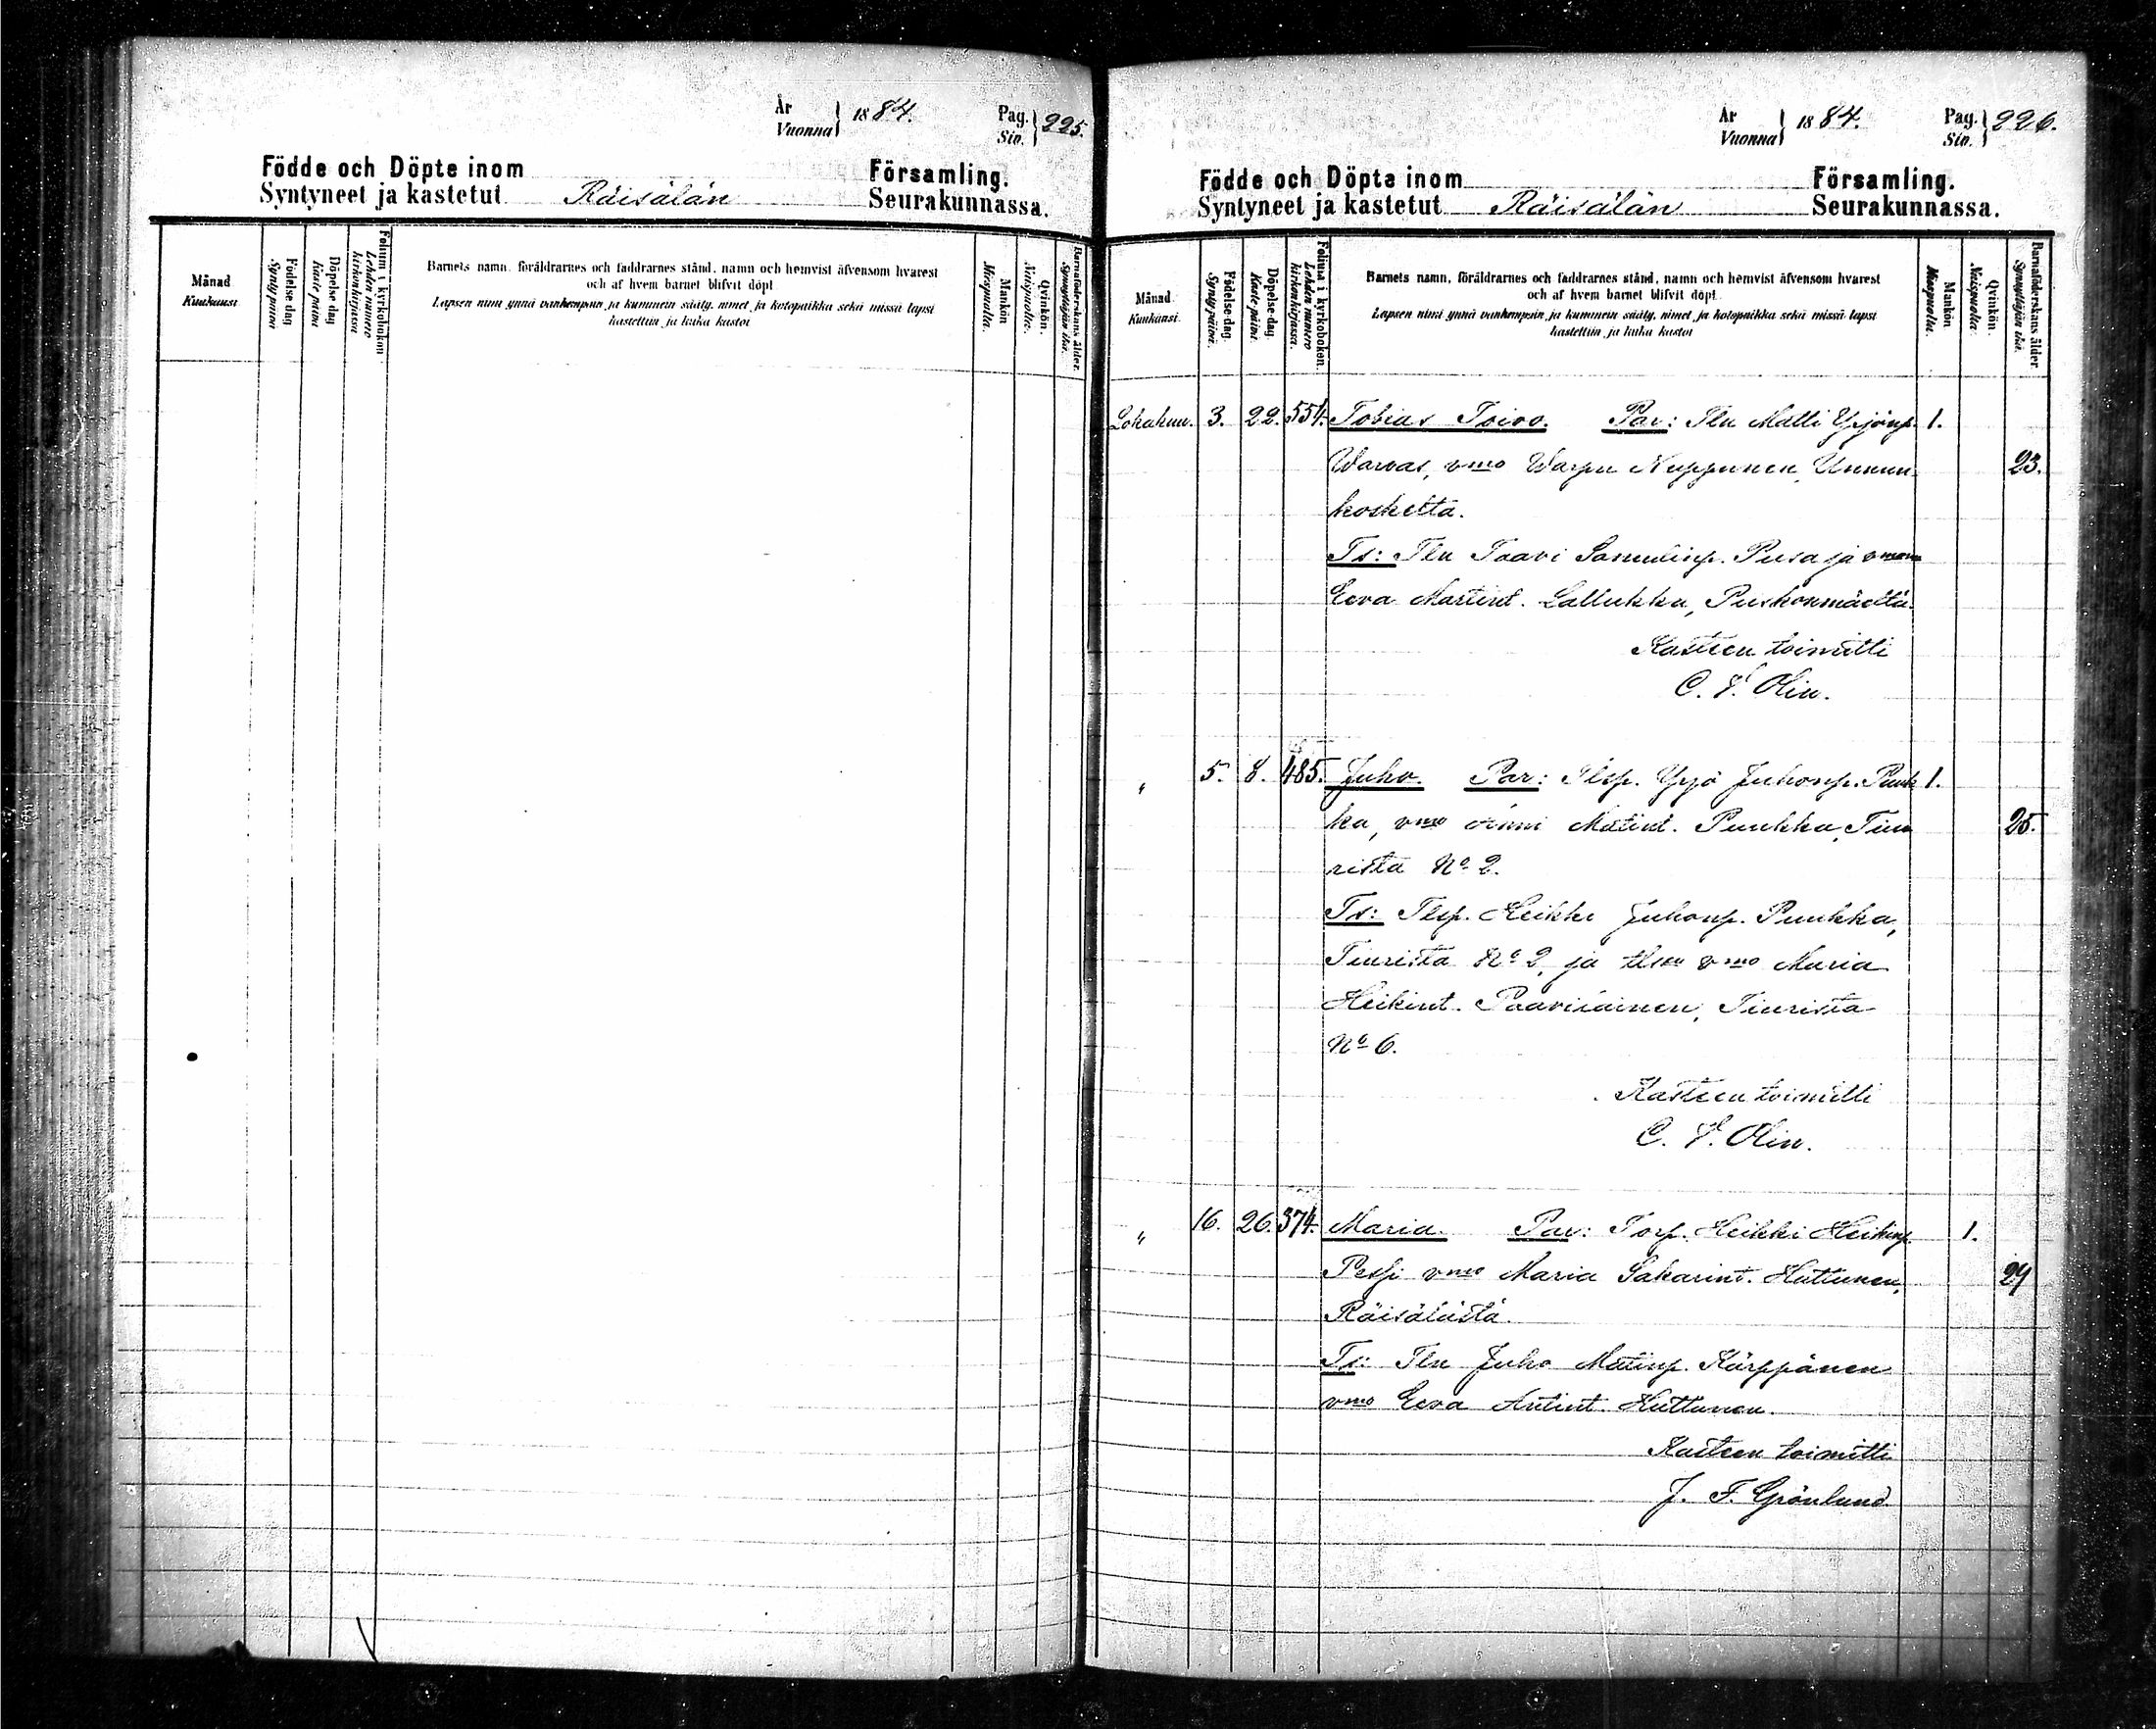 År
Vuonna } 1884.
Pag.
Siv. } 225.
Födde och Döpte inom Församling.
Syntyneet ja kastetut Räisälän Seurakunnassa.
Månad
Kuukausi
Födelse dag
Synty päivä
Döpelse dag
Kaste päivä
Folium i kyrkoboken
Lehden numero kirkonkirjassa
Barnets namn, föräldrarnes och faddrarnes stånd, namn och hemvist äfvensom hvarest
och af hvem barnet blifvit döpt
Lapsen nimi ynnä vanhempain ja kummein sääty, nimet ja kotopaikka sekä missä lapsi
kastettiin ja kuka kastoi
Mankön
Miespuolta.
Qvinkön.
Naispuolta.
Barnaföderskans ålder.
Synnyttäjän ikä.
År
Vuonna } 1884.
Pag.
Siv. } 226.
Födde och Döpte inom Församling.
Syntyneet ja kastetut Räisälän Seurakunnassa.
Månad
Kuukausi.
Födelse-dag.
Synty päivä.
Döpelse-dag.
Kaste-päivä.
Folium i kyrkoboken.
Lehden numero kirkonkirjassa.
Barnets namn, föräldrarnes och faddrarnes stånd, namn och hemvist äfvensom hvarest
och af hvem barnet blifvit döpt.
Lapsen nimi ynnä vanhempain ja kummein sääty, nimet ja kotopaikka sekä missä lapsi
kastettiin ja kuka kastoi
Mankön
Miespuolta.
Qvinkön.
Naispuolta.
Barnaföderskans ålder
Synnyttäjän ikä.
Lokakuu. 3. 22. 554. Tobias Toivo. Par: Tln Matti Yrjönp. 1.
Warvas, vmo Warpu Nuppunen, Unnun- 23.
koskelta.
Ts: Tln Taavi Samulinp. Pusa ja
Eeva Martint. Lallukka, Puskonmäeltä.
Kasteen toimitti
C. F. Olin.
" 5. 8. 485. Juho. Par: Tlsp. Yrjö Juhonp. Puuk 1.
ka, vmo Anni Matint. Puukka, Tiu 25.
rista No 2.
Ts: Tlsp. Heikki Juhonp. Puukka,
Tiurista No 2, ja tlsn vmo Maria
Heikint. Paavilainen, Tiurista
No 6.
Kasteen toimitti
C. F. Olin.
" 16. 26. 374. Maria. Par: Torp. Heikki Heikinp. 1.
Pessi vmo Maria Sakarint. Huttunen, 29
Räisälästä.
Ts: Tln Juho Matinp. Kärppänen
vmo Eeva Antint. Huttunen.
Kasteen toimitti
J. F. Grönlund